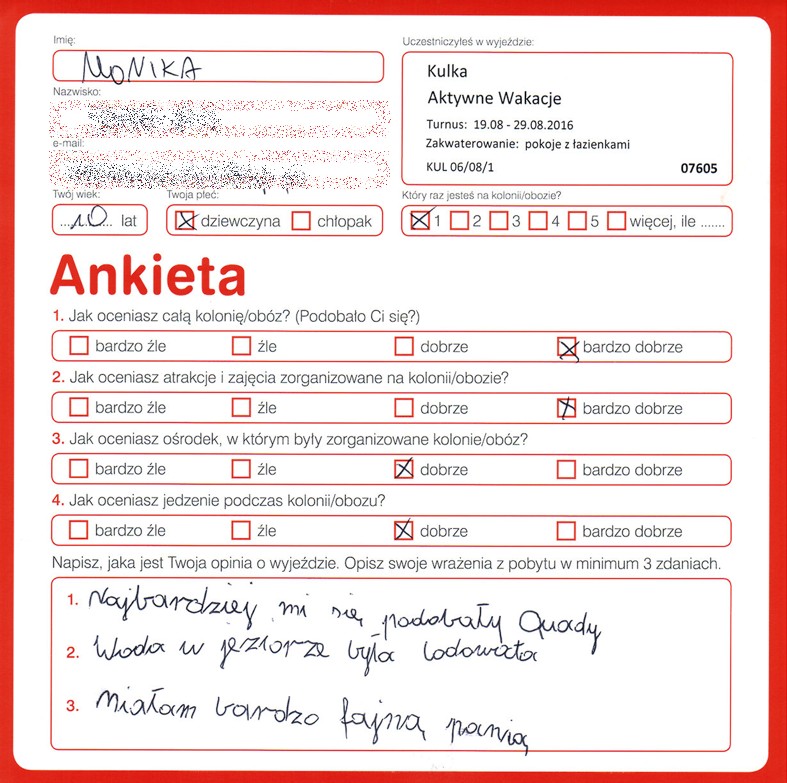 Imię:
MONIKA
Nazwisko:
e-mail:
Twój wiek:
...10... lat
Twoja płeć:
dziewczyna chłopak
Uczestniczyłeś w wyjeździe:
Kulka
Aktywne Wakacje
Turnus: 19.08 - 29.08.2016
Zakwaterowanie: pokoje z łazienkami
KUL 06/08/1 07605
Który raz jesteś na kolonii/obozie?
1 2 3 4 5 więcej, ile .......
Ankieta
1. Jak oceniasz całą kolonię/obóz? (Podobało Ci się?)
bardzo źle źle dobrze bardzo dobrze
2. Jak oceniasz atrakcje i zajęcia zorganizowane na kolonii/obozie?
bardzo źle źle dobrze bardzo dobrze
3. Jak oceniasz ośrodek, w którym były zorganizowane kolonie/obóz?
bardzo źle źle dobrze bardzo dobrze
4. Jak oceniasz jedzenie podczas kolonii/obozu?
bardzo źle źle dobrze bardzo dobrze
Napisz, jaka jest Twoja opinia o wyjeździe. Opisz swoje wrażenia z pobytu w minimum 3 zdaniach.
1. Najbardziej mi się podobały Quady
2. Woda w jeziorze była lodowata
3. Miałam bardzo fajną panią